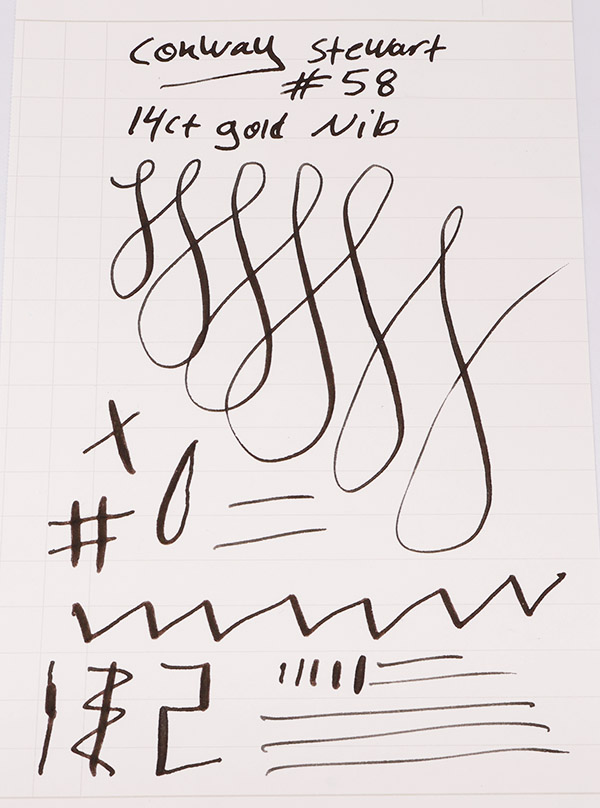 Conway Stewart
#58
14ct gold Nib
x
#